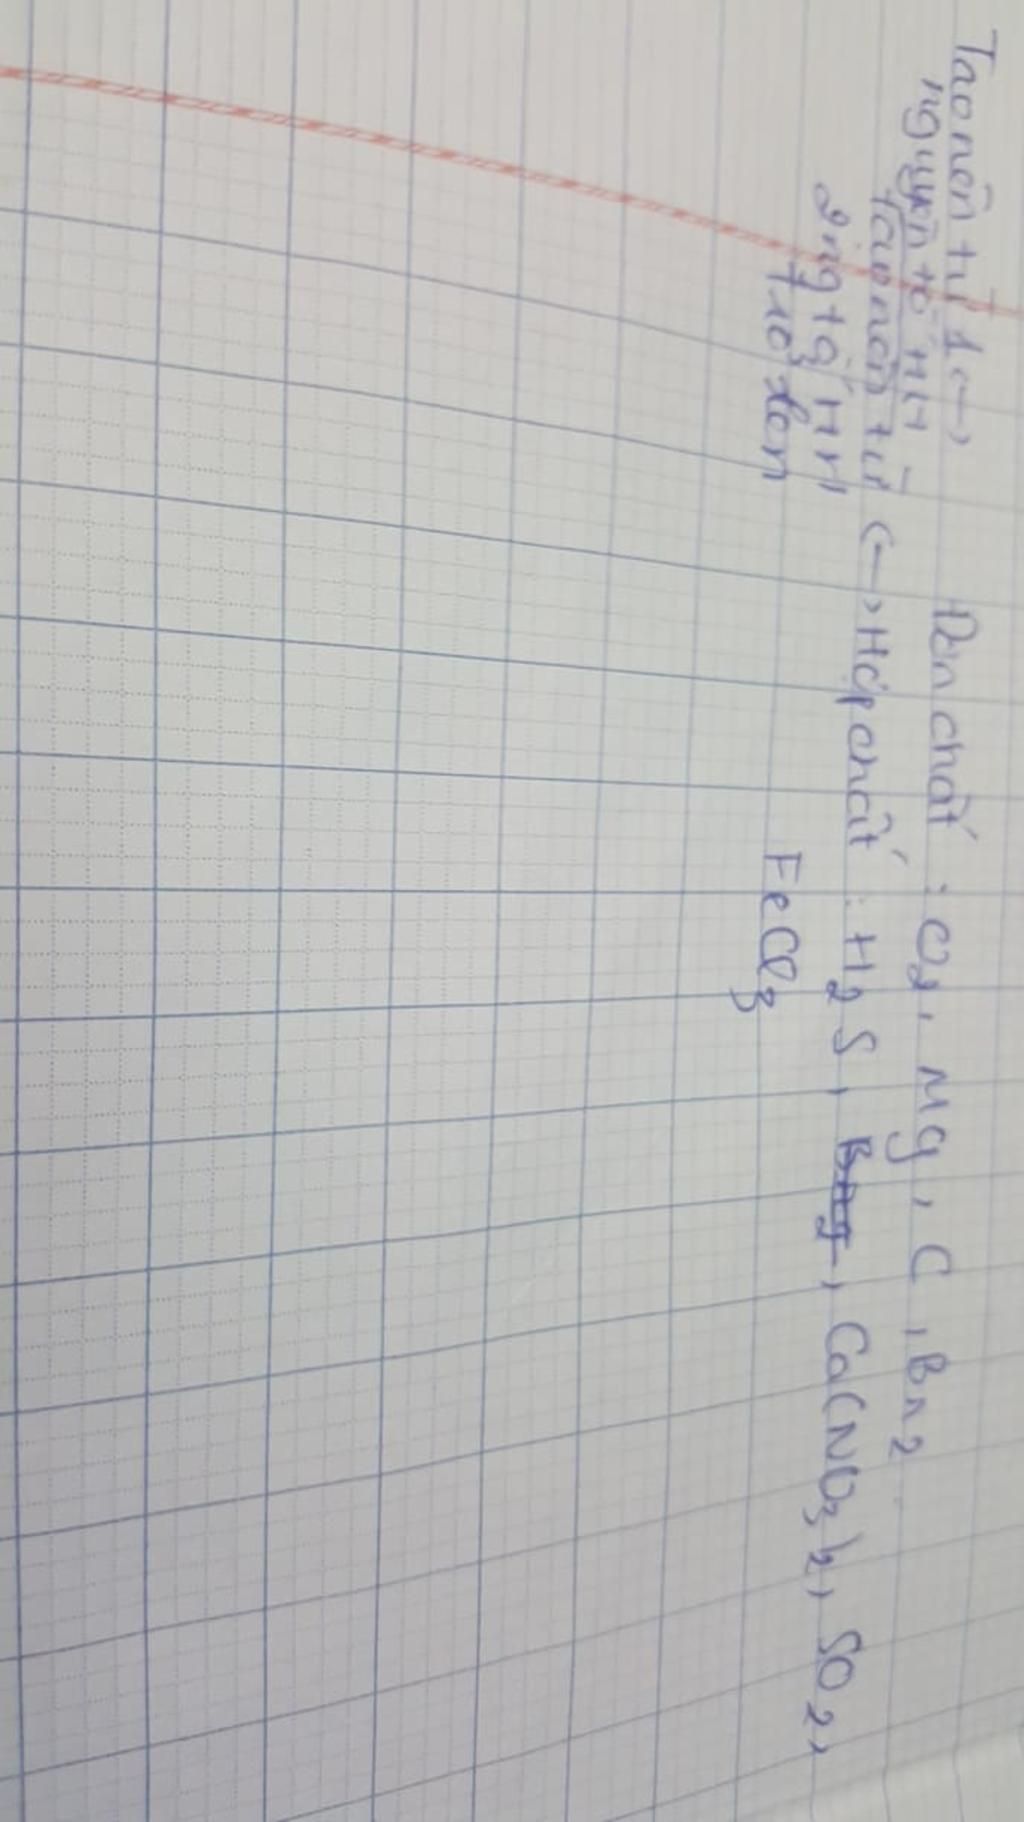 Tạo nên từ 1 <-> Đơn chất : O2, Mg, C, Br2
nguyên tố HH
Tạo nên từ <-> Hợp chất : H2S, CaCNO3)2, SO2,
2 ng tố HH FeCl3
trở lên